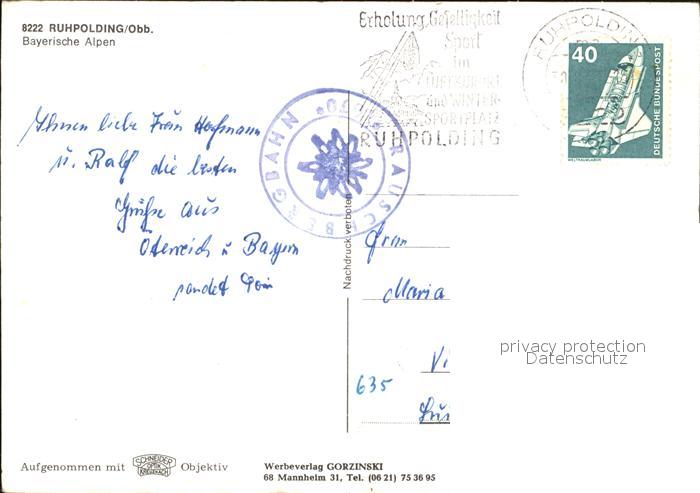 8222 RUHPOLDING/Obb.
Bayerische Alpen
Erholung, Geselligkeit
Sport
im
LUFTKURORT
und WINTER-
SPORTPLATZ
RUHPOLDING
RUHPOLDING
40
DEUTSCHE BUNDESPOST
WELTRAUMLABOR
RAUSCHBERGBAHN
Ihnen liebe Frau
u. Ralf die besten
Grüße aus
Östereich u Bayern
sendet
Nachdruck verboten
Frau
Maria
635
privacy protection
Datenschutz
Aufgenommen mit SCHNEIDER OPTIK KREUZNACH Objektiv
Werbeverlag GORZINSKI
68 Mannheim 31, Tel. (06 21) 75 36 95